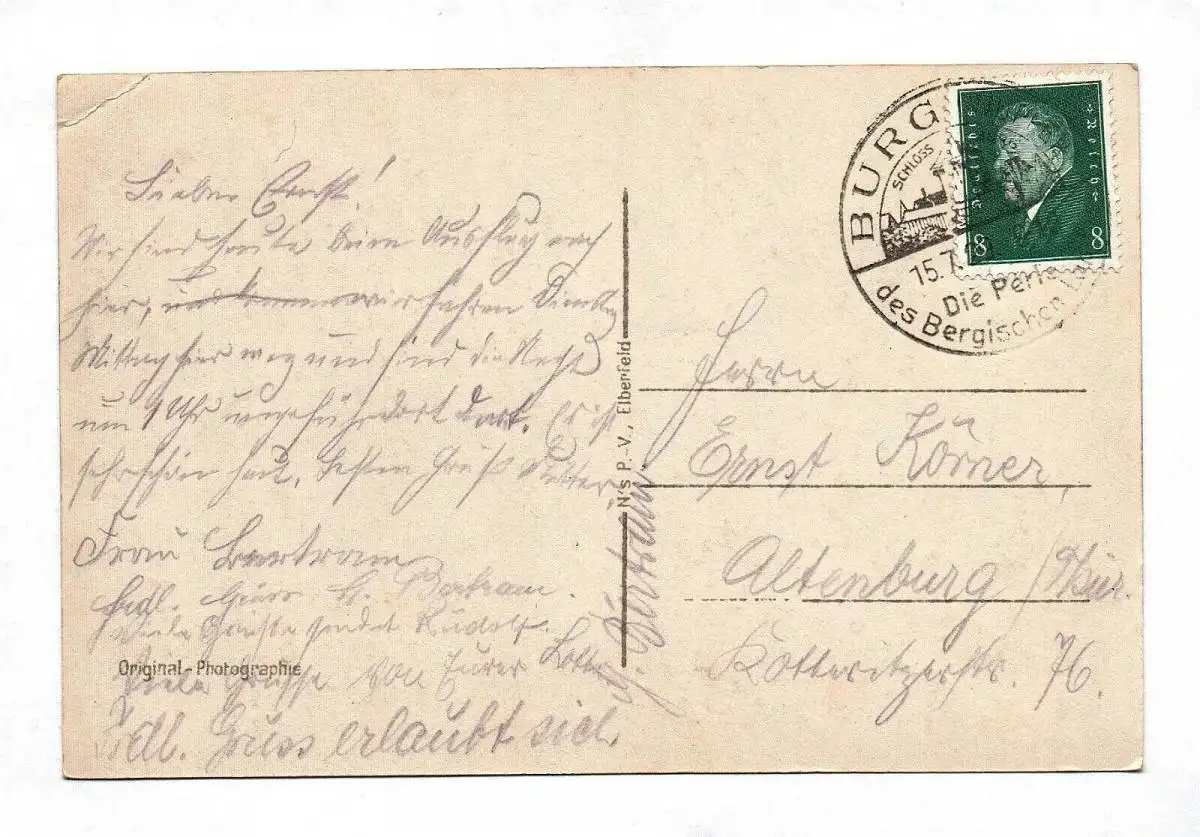 Lieber Ernst!
Wir sind heute beim Ausflug nach
hier, wir fahren Dienstag
Mittag hier weg und sind die Nacht
um 1 Uhr ungefähr dort. Er ist
sehr schön heut. Besten Gruß Mutter.
Frau Bertram
frdl. Gruss H. Bertram.
Viele Grüße sendet Rudolf.
Viele Grüsse von Eurer Lotte
Frdl. Gruss erlaubt sich
G. Bertram
Original-Photographie
N's P.-V., Elberfeld
BURG
SCHLOSS
15.7.
Die Perle
des Bergischen
Deutsches Reich
8 8
Herrn
Ernst Körner,
Altenburg /Thür.
Kotteritzerstr. 76.